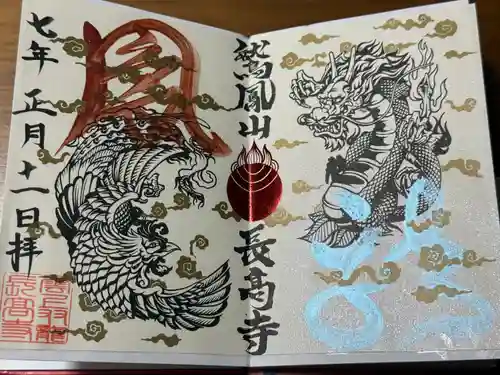 鷲鳳山 長髙寺
鳳
七年 正月十一日 拝
長髙寺